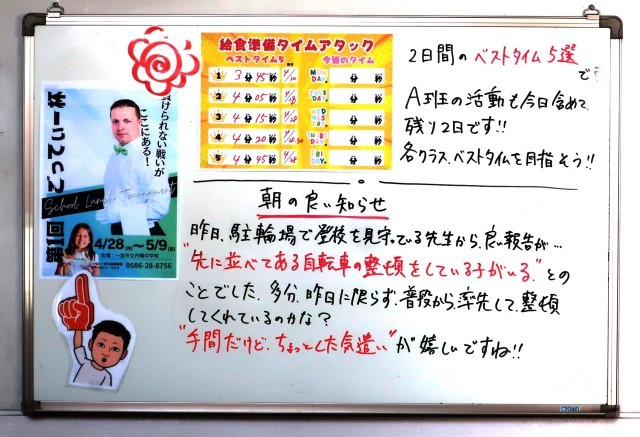 給食準備タイムアタック
ベストタイム5
今週のタイム
1 3分45秒 4/10
2 4分05秒 4/18
3 4分15秒
4 4分20秒
5 4分45秒
MON DAY 分 秒
TUES DAY 分 秒
WED NES DAY 分 秒
THURS DAY 分 秒
FRI DAY 分 秒
2日間のベストタイム5選で
A班の活動も今日含めて
残り2日です!!
各クラス、ベストタイムを目指そう!!
負けられない戦いが
ここにある!
第1回
School Lunch Tournament
4/28(月)~5/9(金)
会場:一宮市立丹陽中学校
0586-28-8756
朝の良い知らせ
昨日、駐輪場で登校を見守っている先生から、良い報告が…
"先に並べてある自転車の整頓をしている子がいる。"との
ことでした。多分、昨日に限らず、普段から率先して、整頓
してくれているのかな?
"手間だけど、ちょっとした気遣い"が嬉しいですね!!